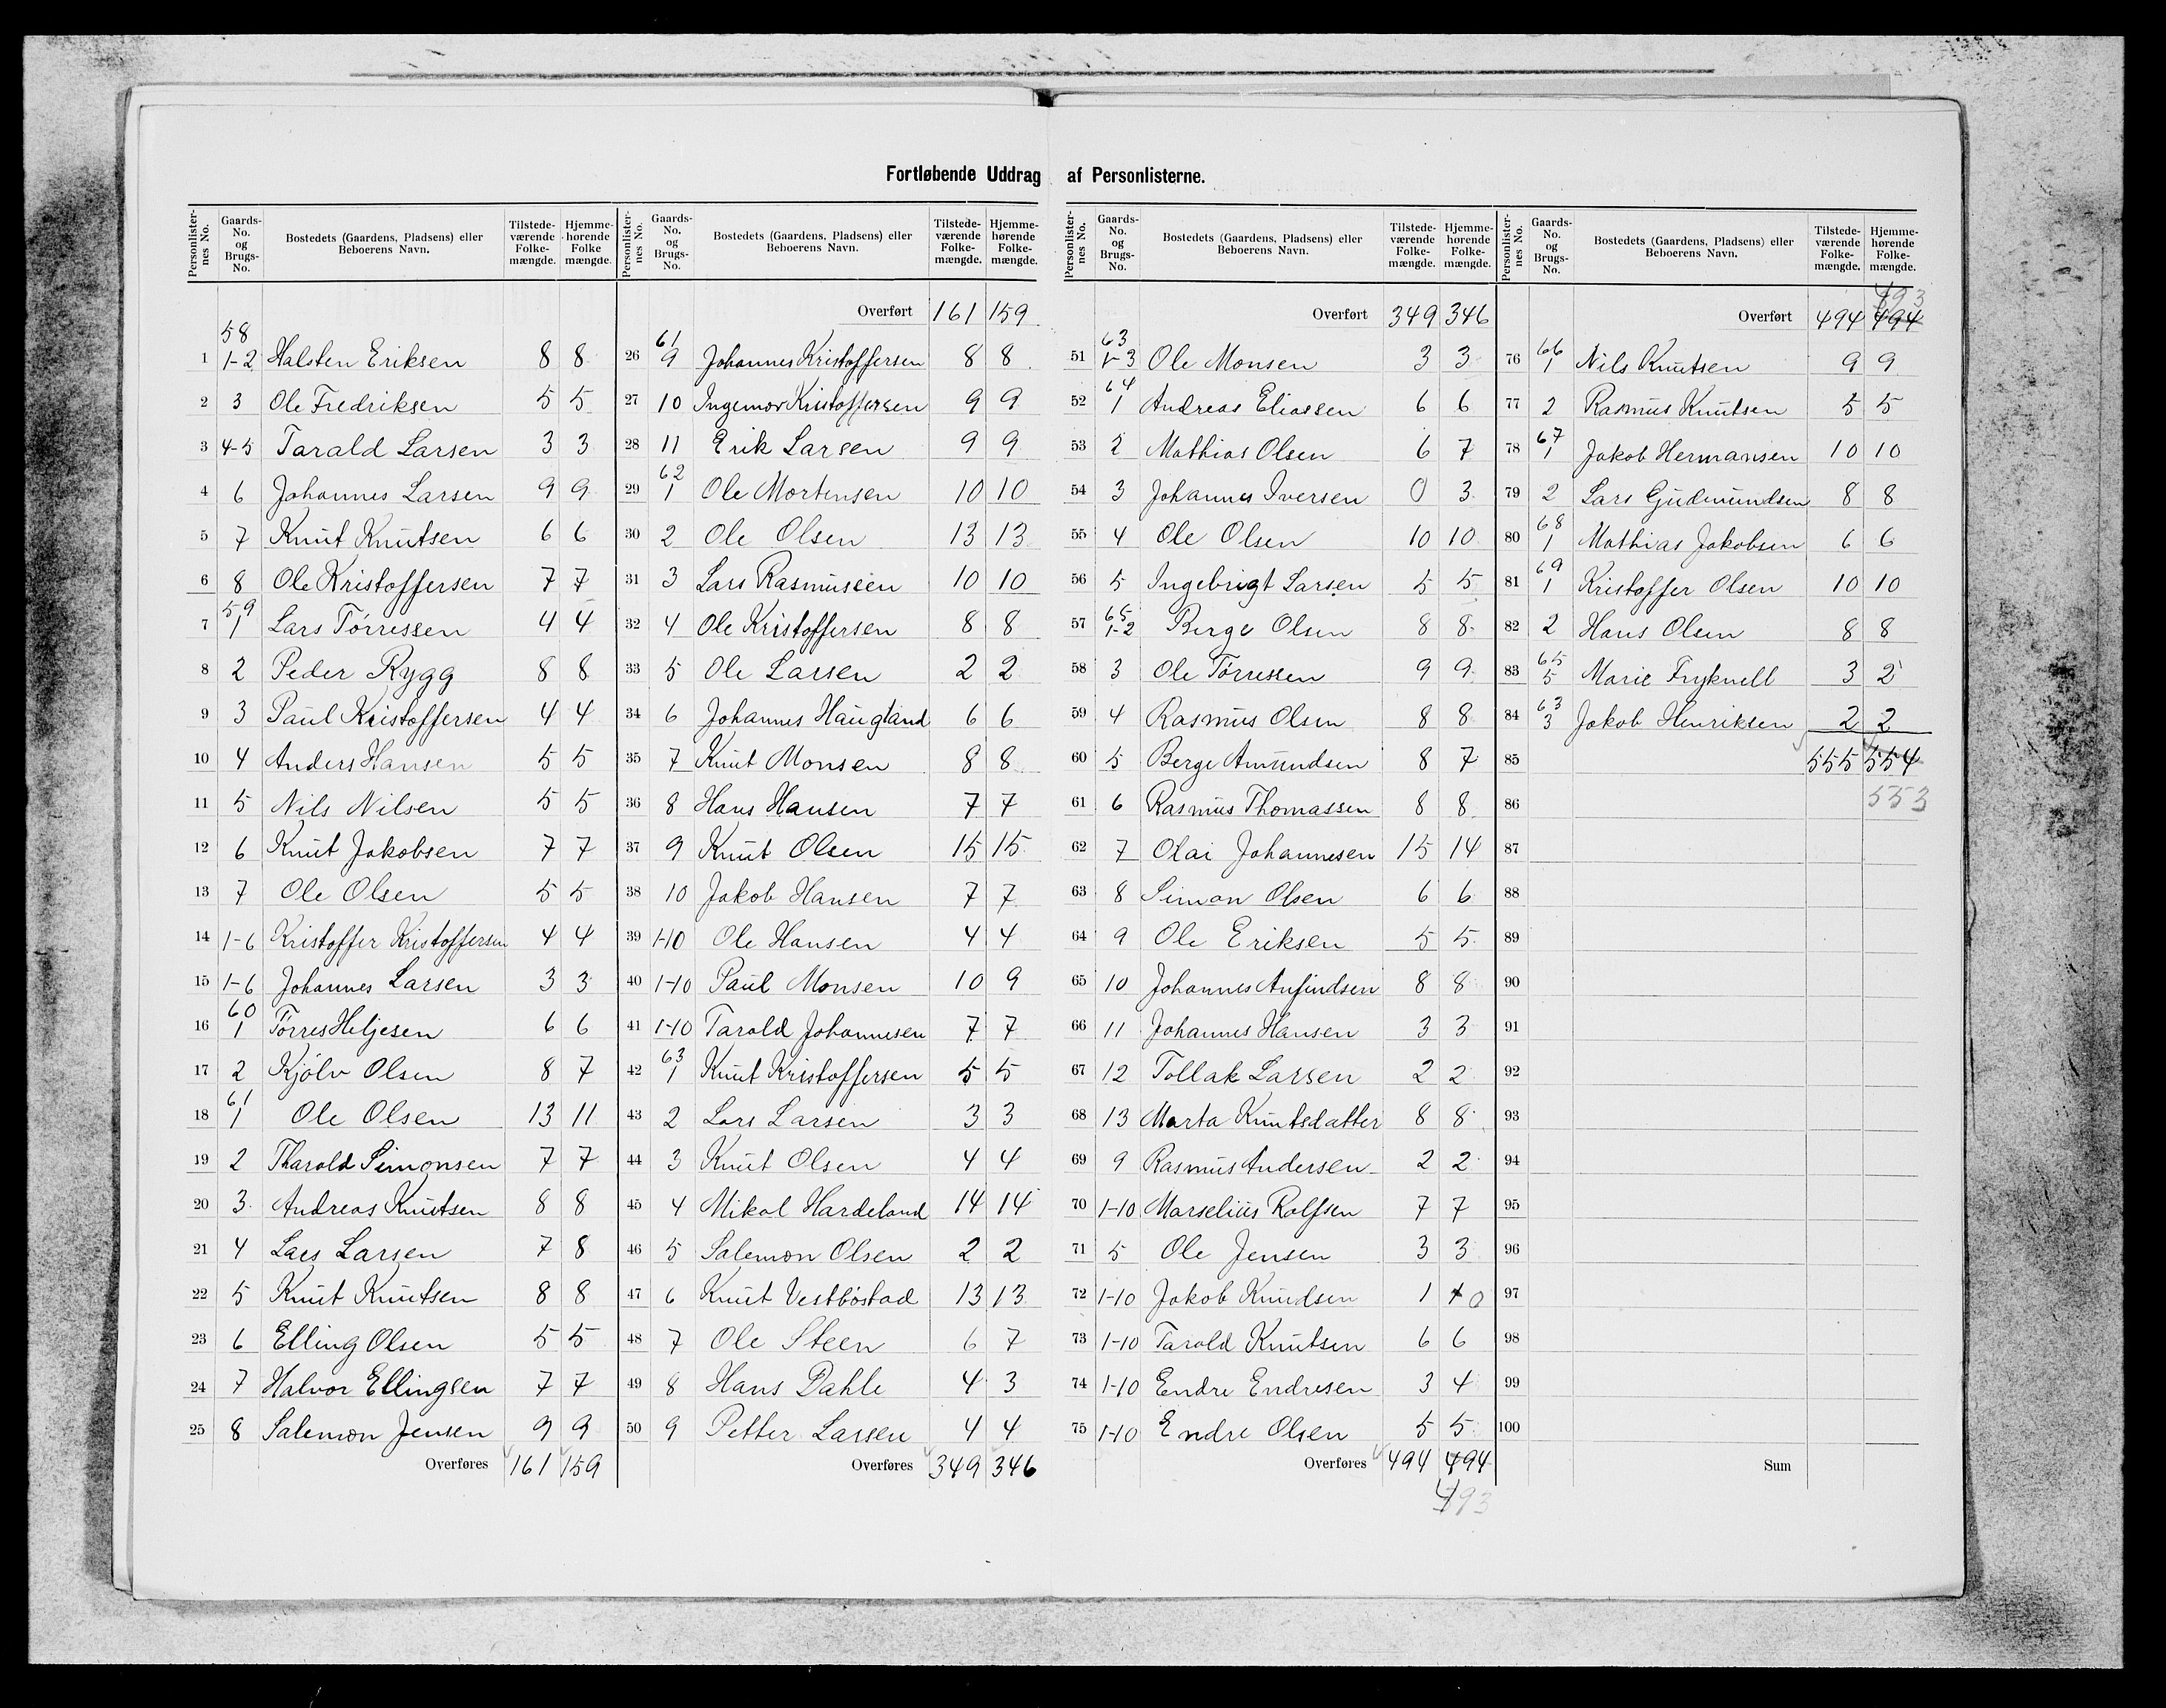 Fortløbende Uddrag af Personlisterne.
Personlisternes No. Gaards-No. og Brugs-No. Bostedets (Gaardens, Pladsens) eller Beboerens Navn. Tilstedeværende Folkemængde. Hjemmehørende Folke mængde.
58
1 1-2 Halsten Eriksen 8 8
2 3 Ole Fredriksen 5 5
3 4-5 Tarald Larsen 3 3
4 6 Johannes Larsen 9 9
5 7 Knut Knutsen 6 6
6 8 Ole Kristoffersen 7 7
59
7 1 Lars Tørressen 4 4
8 2 Peder Rygg 8 8
9 3 Paul Kristoffersen 4 4
10 4 Anders Hansen 5 5
11 5 Nils Nilsen 5 5
12 6 Knut Jakobsen 7 7
13 7 Ole Olsen 5 5
14 1-6 Kristoffer Kristoffersen 4 4
15 1-6 Johannes Larsen 3 3
60
16 1 Tørres Heljesen 6 6
17 2 Kjølv Olsen 8 7
61
18 1 Ole Olsen 13 11
19 2 Tharald Simonsen 7 7
20 3 Andreas Knutsen 8 8
21 4 Lars Larsen 7 8
22 5 Knut Knutsen 8 8
23 6 Elling Olsen 5 5
24 7 Halvor Ellingsen 7 7
25 8 Salemon Jensen 9 9
Overføres 161 159
Personlisternes No. Gaards-No. og Brugs-No. Bostedets (Gaardens, Pladsens) eller Beboerens Navn. Tilstedeværende Folkemængde. Hjemmehørende Folkemængde.
Overført 161 159
61
26 9 Johannes Kristoffersen 8 8
27 10 Ingemor Kristoffersen 9 9
28 11 Erik Larsen 9 9
62
29 1 Ole Mortensen 10 10
30 2 Ole Olsen 13 13
31 3 Lars Rasmussen 10 10
32 4 Ole Kristoffersen 8 8
33 5 Ole Larsen 2 2
34 6 Johannes Haugland 6 6
35 7 Knut Monsen 8 8
36 8 Hans Hansen 7 7
37 9 Knut Olsen 15 15
38 10 Jakob Hansen 7 7
39 1-10 Ole Hansen 4 4
40 1-10 Paul Monsen 10 9
41 1-10 Tarald Johannesen 7 7
63
42 1 Knut Kristoffersen 5 5
43 2 Lars Larsen 3 3
44 3 Knut Olsen 4 4
45 4 Mikal Hardeland 14 14
46 5 Salemon Olsen 2 2
47 6 Knut Vestbøstad 13 13
48 7 Ole Steen 6 7
49 8 Hans Dahle 4 3
50 9 Petter Larsen 4 4
Overføres 349 346
Personlisternes No. Gaards-No. og Brugs-No. Bostedets (Gaardens, Pladsens) eller Beboerens Navn. Tilstedeværende Folkemængde. Hjemmehørende Folkemængde.
Overført 349 346
63
51 1-3 Ole Monsen 3 3
64
52 1 Andreas Eliassen 6 6
53 2 Mathias Olsen 6 7
54 3 Johannes Iversen 0 3
55 4 Ole Olsen 10 10
56 5 Ingebrigt Larsen 5 5
65
57 1-2 Berge Olsen 8 8
58 3 Ole Tørressen 9 9
59 4 Rasmus Olsen 8 8
60 5 Berge Amundsen 8 7
61 6 Rasmus Thomassen 8 8
62 7 Olai Johannesen 15 14
63 8 Simon Olsen 6 6
64 9 Ole Eriksen 5 5
65 10 Johannes Anfindsen 8 8
66 11 Johannes Hansen 3 3
67 12 Tollak Larsen 2 2
68 13 Marta Knutsdatter 8 8
69 9 Rasmus Andersen 2 2
70 1-10 Marselius Rolfsen 7 7
71 5 Ole Jensen 3 3
72 1-10 Jakob Knudsen 1 1 0
73 1-10 Tarald Knutsen 6 6
74 1-10 Endre Endresen 3 4
75 1-10 Endre Olsen 5 5
Overføres 494 494
493
Personlisternes No. Gaards-No. og Brugs-No. Bostedets (Gaardens, Pladsens) eller Beboerens Navn. Tilstedeværende Folkemængde. Hjemmehørende Folkemængde.
493
Overført 494 494
66
76 1 Nils Knutsen 9 9
77 2 Rasmus Knutsen 5 5
67
78 1 Jakob Hermansen 10 10
79 2 Lars Gudmundsen 8 8
68
80 1 Mathias Jakobsen 6 6
69
81 1 Kristoffer Olsen 10 10
82 2 Hans Olsen 8 8
65
83 5 Marie Fryknell 3 2
63
84 3 Jakob Henriksen 2 2
85 555 554
86 553
87
88
89
90
91
92
93
94
95
96
97
98
99
100
Sum